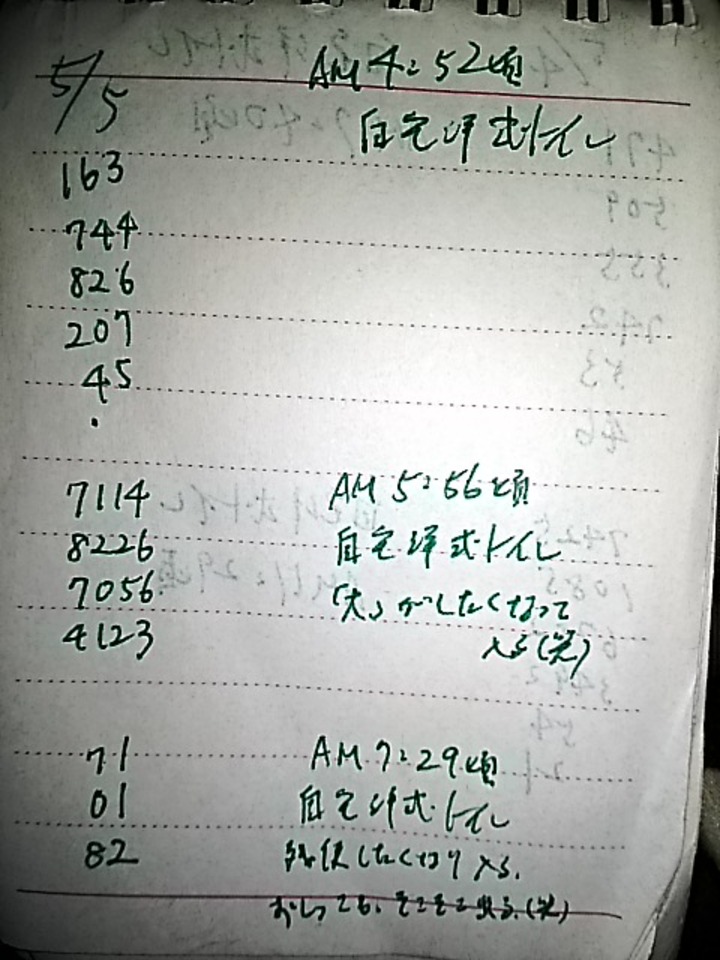 5/5 AM 4:52頃
自宅洋式トイレ
163
744
826
207
45
.
7114 AM 5:56頃
8226 自宅洋式トイレ
7056 「大」がしたくなって
4123 入る(笑)
71 AM 7:29頃
01 自宅洋式トイレ
82 したくなり入る。
おしっこも、そこそこ出る。(笑)